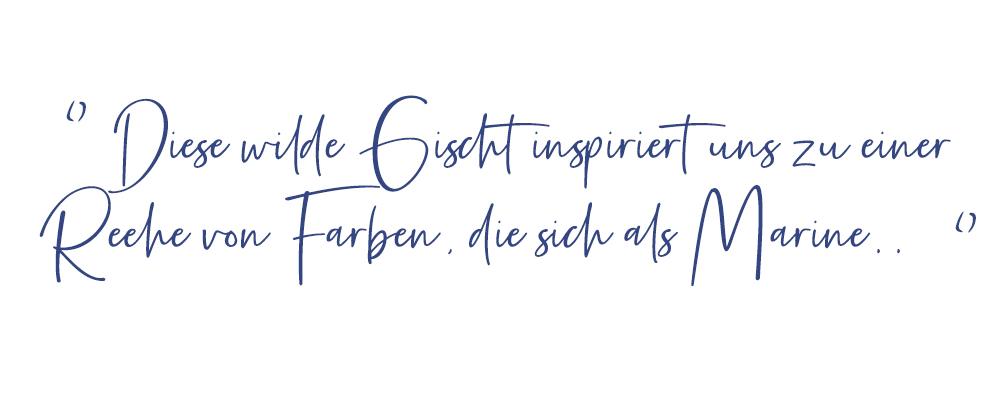 ‘’ Diese wilde Gischt inspiriert uns zu einer
Reehe von Farben, die sich als Marine.. ‘’